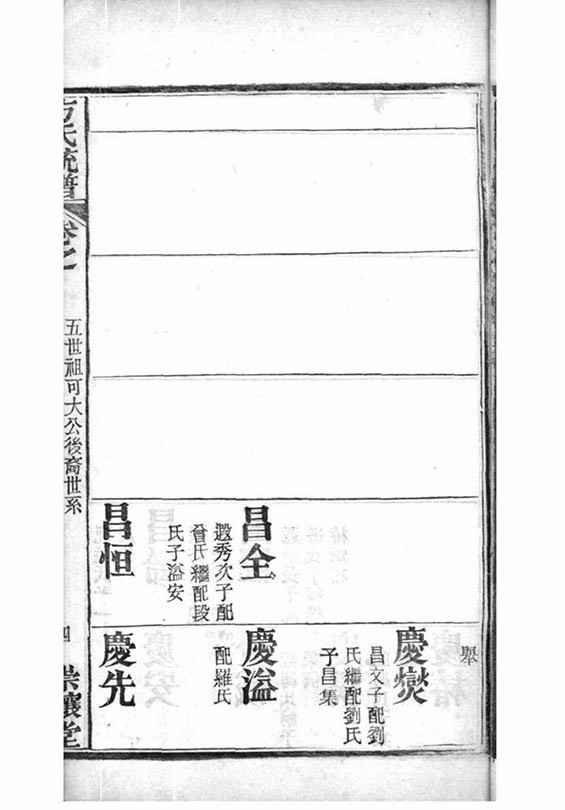 昌全
遐秀次子配
曾氏繼配段
氏子溢安
昌恒
舉
慶爕
昌文子配劉
氏繼配劉氏
子昌集
慶溢
配羅氏
慶先
氏統譜
卷之
五世祖可大公後裔世系
四
堂